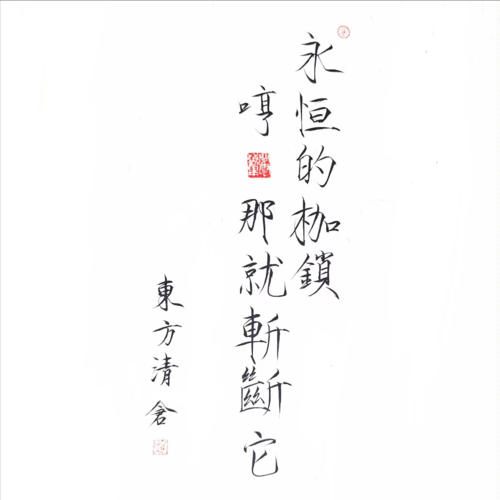 永恒的枷鎖
哼 那就斬斷它
東方清倉